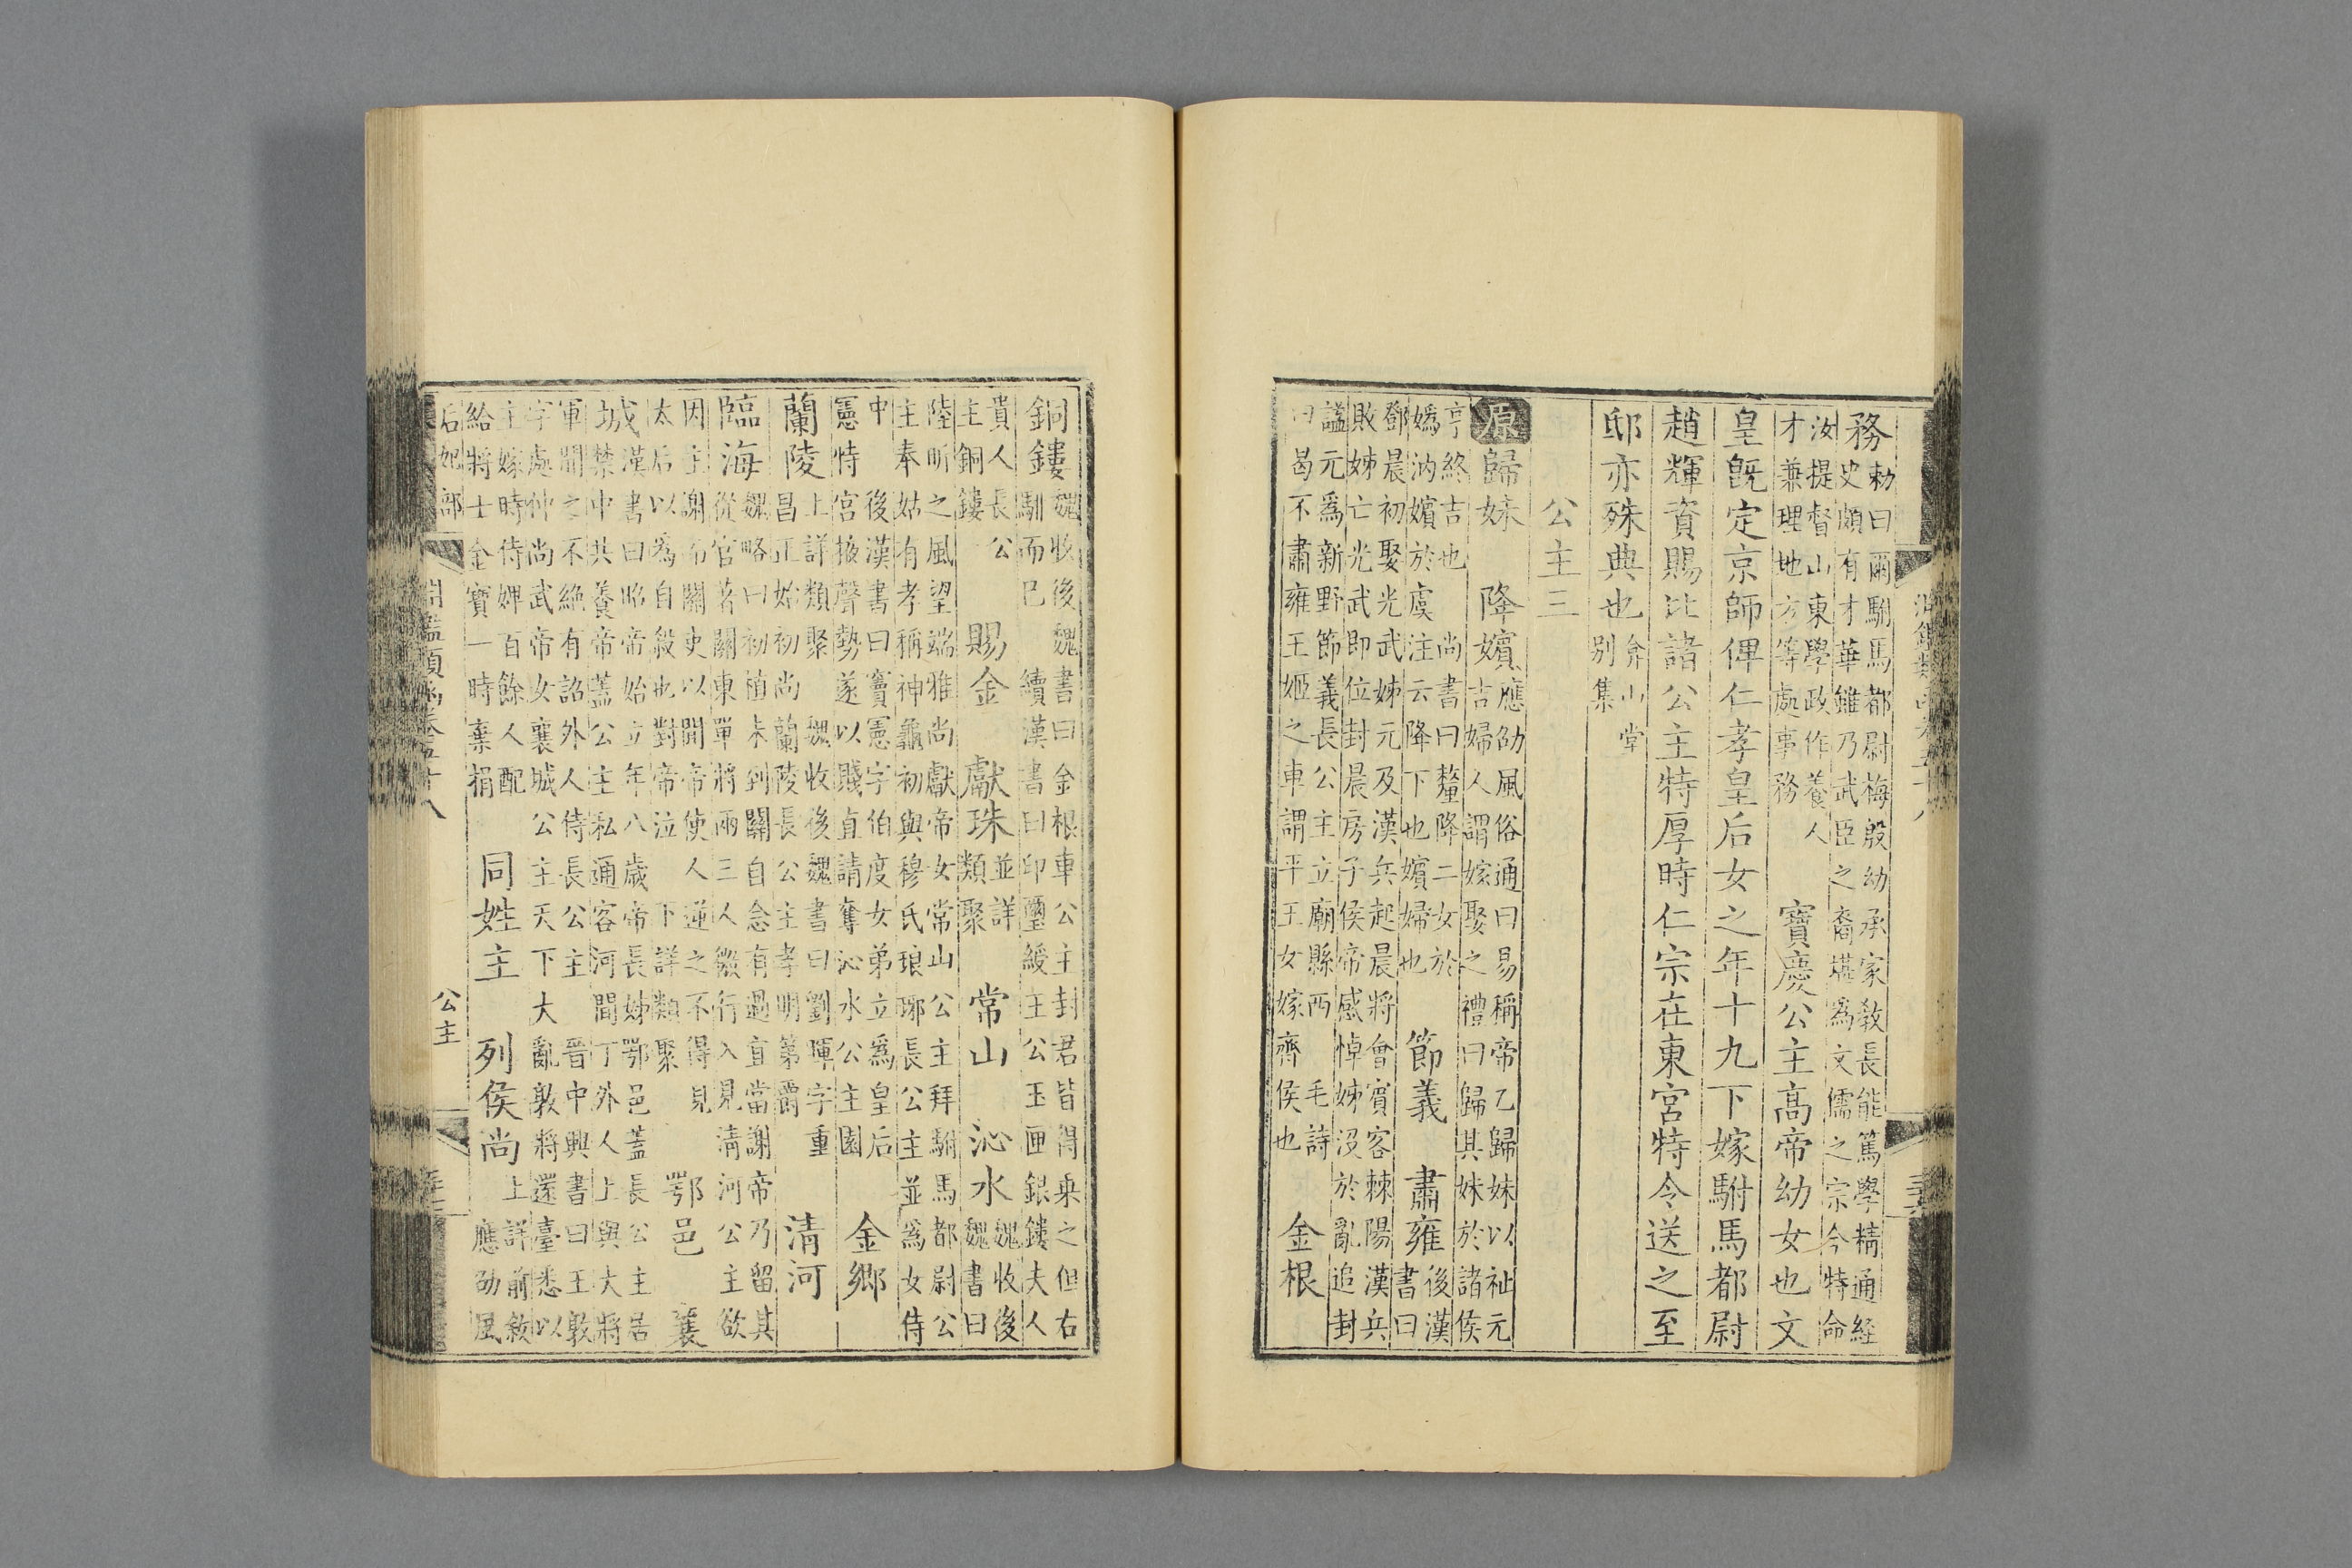 務勅曰爾駙馬都尉梅殷幼承家教長能篤學精通經
史頗有才華雖乃武臣之裔堪爲文儒之宗今特命
汝提督山東學政作養人
才兼理地方等處事務 寶慶公主高帝幼女也文
皇旣定京師俾仁孝皇后女之年十九下嫁駙馬都尉
趙輝資賜比諸公主特厚時仁宗在東宮特令送之至
邸亦殊典也 弇山堂
別集
公主三
原 歸妹 降嬪 應劭風俗通曰易稱帝乙歸妹以祉元
吉婦人謂嫁娶之禮曰歸其妹於諸侯
亨終吉也 尚書曰釐降二女於
嬀汭嬪於虞注云降下也嬪婦也 節義 肅雍 後漢
書曰
鄧晨初娶光武姊元及漢兵起晨將會賓客棘陽漢兵
敗姊亡光武即位封晨房子侯帝感悼姊沒於亂追封
謚元爲新野節義長公主立廟縣西 毛詩
曰曷不肅雍王姬之車謂平王女嫁齊侯也 金根
銅鏤 魏收後魏書曰金根車公主封君皆得乘之但右
馴而已 續漢書曰印璽綬主公玉匣銀鏤夫人
貴人長公
主銅鏤 賜金 獻珠 並詳
類聚 常山 沁水 魏收後
魏書曰
陸昕之風望端雅尚獻帝女常山公主拜駙馬都尉公
主奉姑有孝稱神龜初與穆氏琅琊長公主並爲女侍
中 後漢書曰竇憲字伯度女弟立爲皇后
憲恃宮掖聲勢遂以賤直請奪沁水公主園 金鄉
蘭陵 上詳類聚 魏收後魏書曰劉暉字重
昌正始初尚蘭陵長公主孝明第爵 清河
臨海 魏略曰初植未到關自念有過宜當謝帝乃留其
從官著關東單將兩三人微行入見清河公主欲
因主謝而關吏以聞帝使人逆之不得見
太后以爲自殺也對帝泣 下詳類聚 鄂邑 襄
城 漢書曰昭帝始立年八歲帝長姊鄂邑蓋長公主居
禁中共養帝蓋公主私通客河間丁外人上與大將
軍聞之不絕有詔外人侍長公主 晉中興書曰王敦
字處仲尚武帝女襄城公主天下大亂敦將還臺悉以
主嫁時侍婢百餘人配
給將士金寶一時棄捐 同姓主 列侯尚 上詳前敘
應劭風
后妃部 淵鑑類函卷五十八 公主